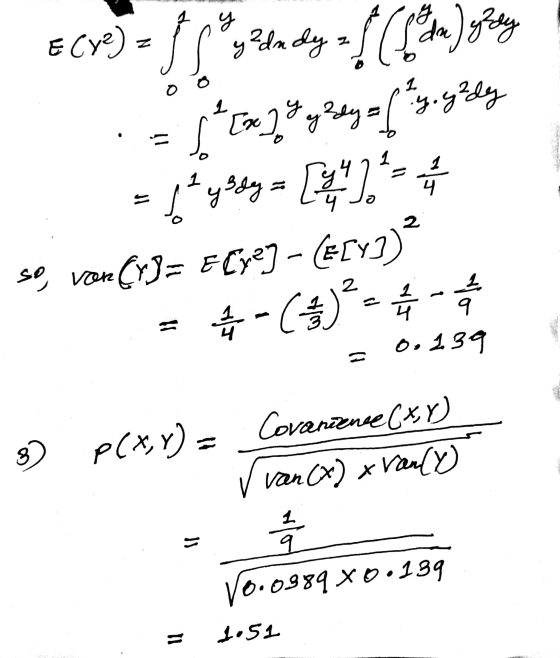 E(Y²) = ∫₀¹ ∫₀ʸ y²dx dy = ∫₀¹ (∫₀ʸ dx) y²dy
= ∫₀¹ [x]₀ʸ y²dy = ∫₀¹ y·y²dy
= ∫₀¹ y³dy = [y⁴/4]₀¹ = 1/4
so, var[Y] = E[Y²] - (E[Y])²
= 1/4 - (1/3)² = 1/4 - 1/9
= 0.139
3) P(X,Y) = Covarience(X,Y) / √(var(X) × Var(Y))
= (1/9) / √(0.0989 × 0.139)
= 1.51